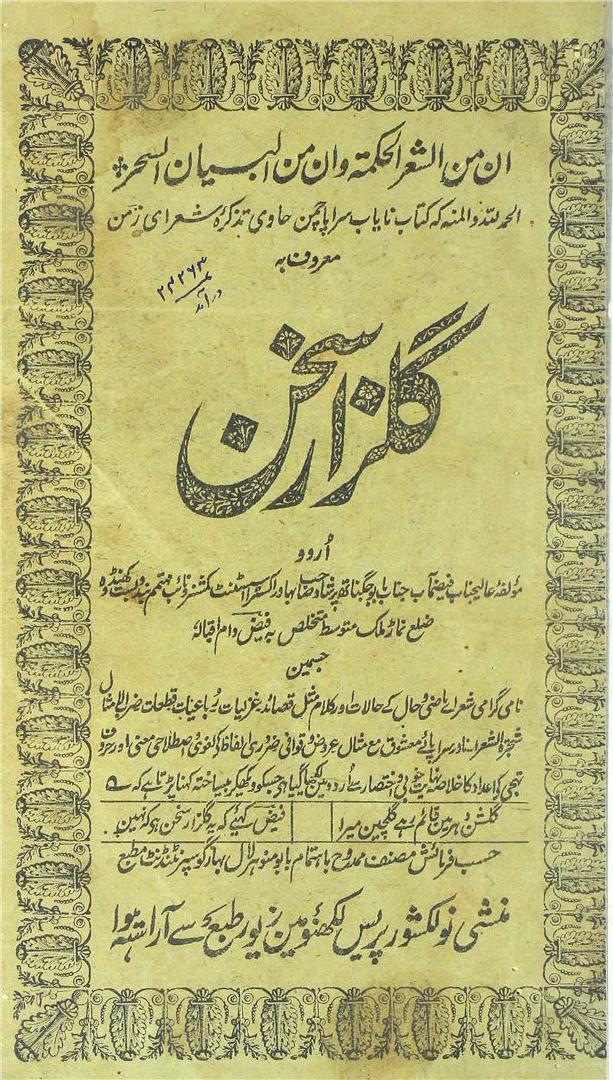 ان من الشعر الحکمة وان من البیان السحر
الحمد للہ والمنہ کہ کتاب نایاب سراپا چمن حاوی تذکرۂ شعرای زمن
معروف بہ
۲۴۲۶۳
درآمد
گلزار سخن
اُردو
مؤلفہ عالیجناب فیضمآب جناب بابو جگناتھ پرشاد صاحب بہادر اکسٹرا اسسٹنٹ کمشنر نائب مہتمم بندوبست کھنڈوہ
ضلع نماڑ ملک متوسط متخلص بہ فیض دام اقبالہ
جسمین
نامی گرامی شعرا ے ماضی و حال کے حالات اور کلام مثل قصائد غزلیات رباعیات قطعات ضرب الامثال
شجرۃ الشعرا نادر سراپا ے معشوق مع مثال عروض و قوافی ضروری الفاظ کی لغوی اصطلاحی معنی اور حروف
تہجی کے اعداد کا خلاصہ نہایت خوبی و اختصار سے اُردو مین لکھا گیا ہی جسکو دیکھکر بیساختہ کہنا پڑتا ہے کہ ے
گلشن دہر مین قائم رہے گلچین میرا فیض کہئے کہ یہ گلزار سخن ہی کہ نہین
حسب فرمائش مصنف ممدوح باہتمام بابو منوہر لال بہارگو سپرنٹنڈنٹ مطبع
منشی نولکشور پریس لکھنؤ مین زیور طبع سے آراستہ ہوا